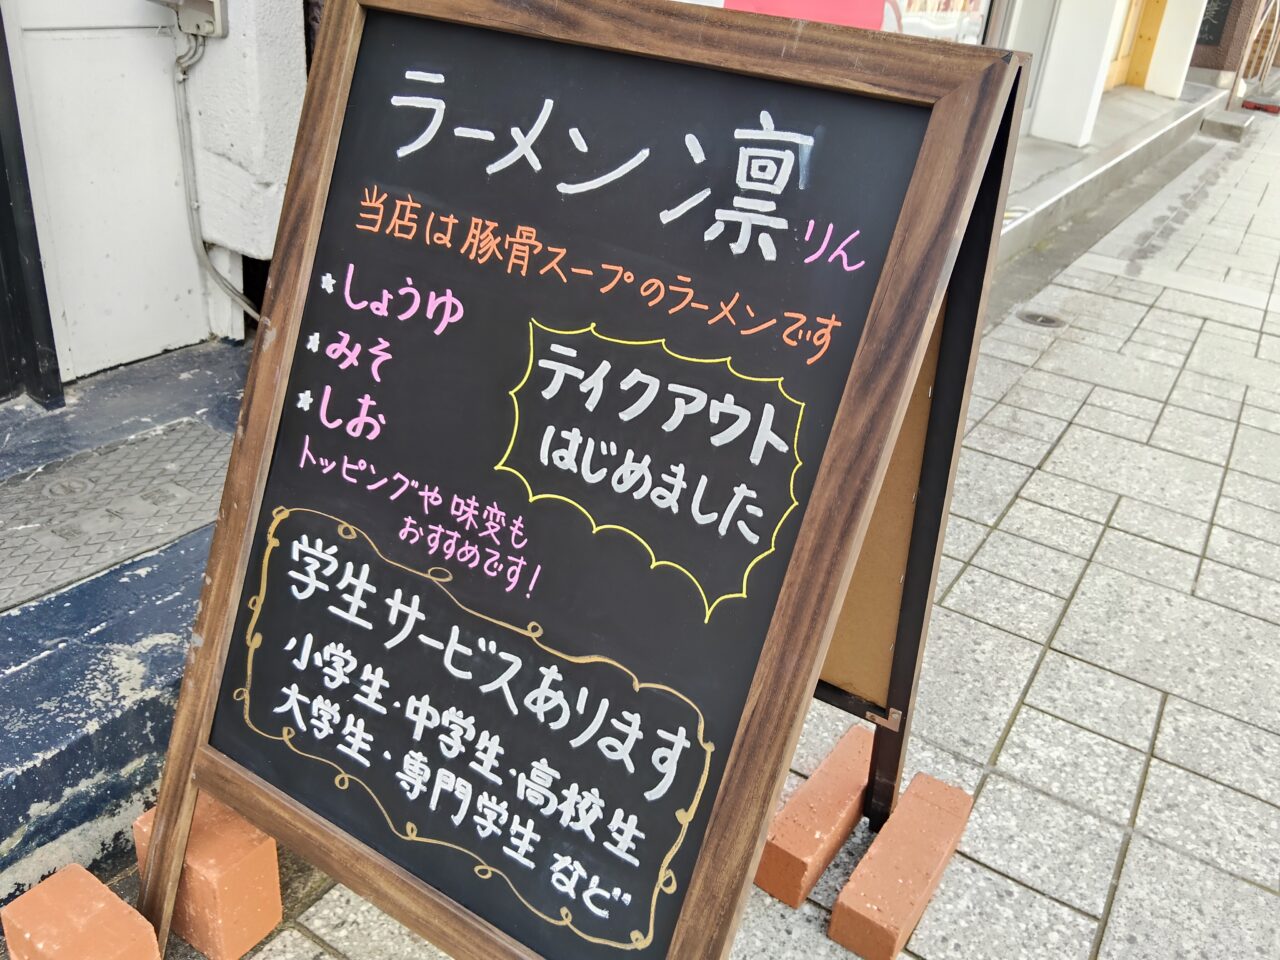 ラーメン 凛 りん
当店は豚骨スープのラーメンです
★しょうゆ
★みそ
★しお
トッピングや味変も
おすすめです!
テイクアウト
はじめました
学生サービスあります
小学生・中学生・高校生
大学生・専門学生など